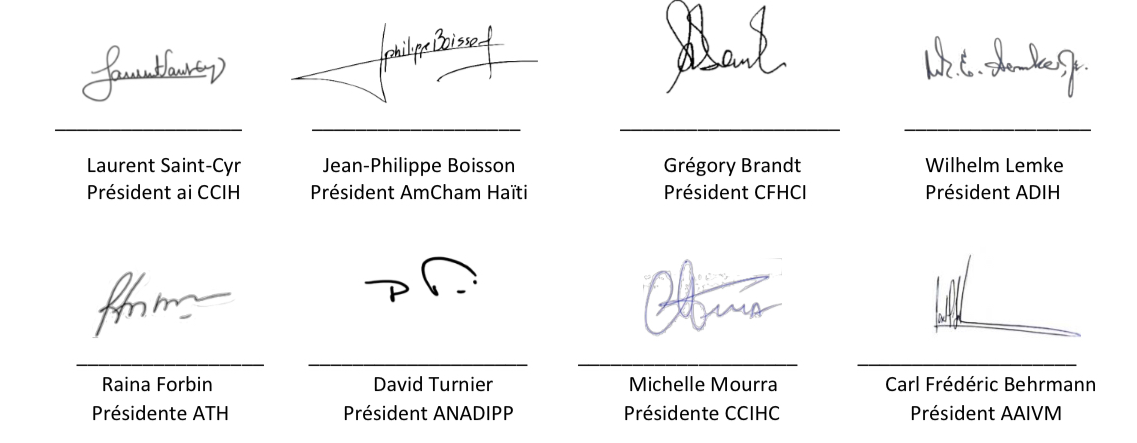 Laurent Saint-Cyr
Président ai CCIH
Jean-Philippe Boisson
Président AmCham Haïti
Grégory Brandt
Président CFHCI
W. E. Lemke, Jr.
Wilhelm Lemke
Président ADIH
Raina Forbin
Présidente ATH
David Turnier
Président ANADIPP
Michelle Mourra
Présidente CCIHC
Carl Frédéric Behrmann
Président AAIVM